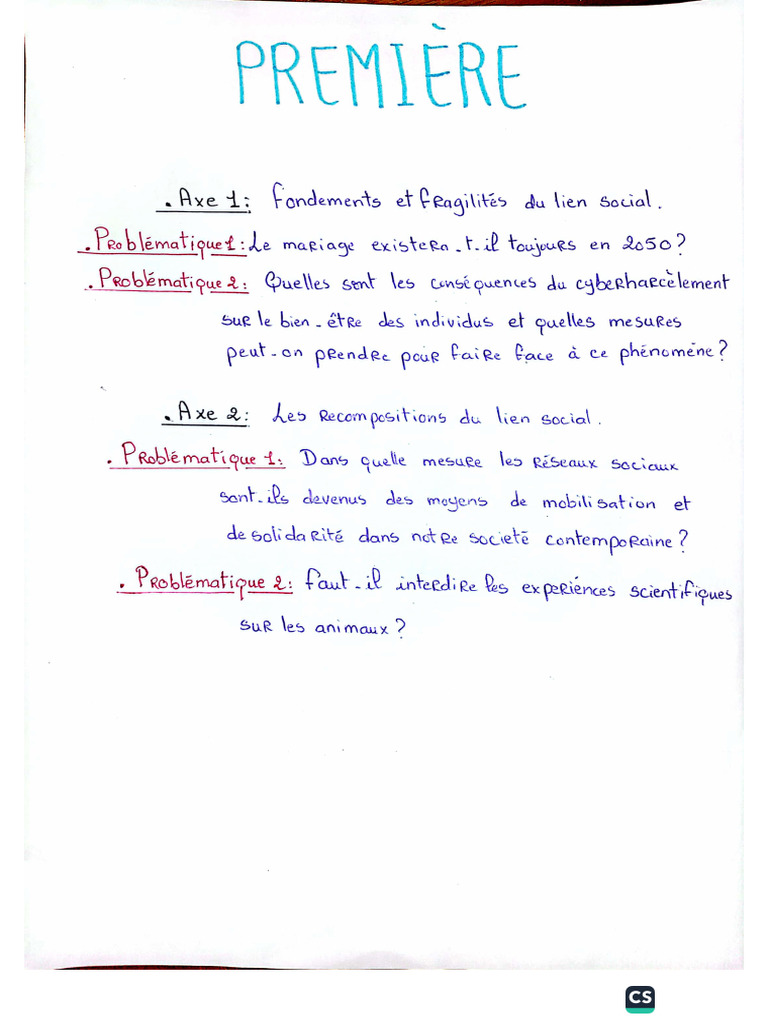 PREMIÈRE
. Axe 1: Fondements et fragilités du lien social.
. Problématique 1: Le mariage existera-t-il toujours en 2050?
. Problématique 2: Quelles sont les conséquences du cyberharcèlement
sur le bien-être des individus et quelles mesures
peut-on prendre pour faire face à ce phénomène?
. Axe 2: Les recompositions du lien social.
. Problématique 1: Dans quelle mesure les réseaux sociaux
sont-ils devenus des moyens de mobilisation et
de solidarité dans notre societé contemporaine?
. Problématique 2: Faut-il interdire les experiénces scientifiques
sur les animaux?
CS